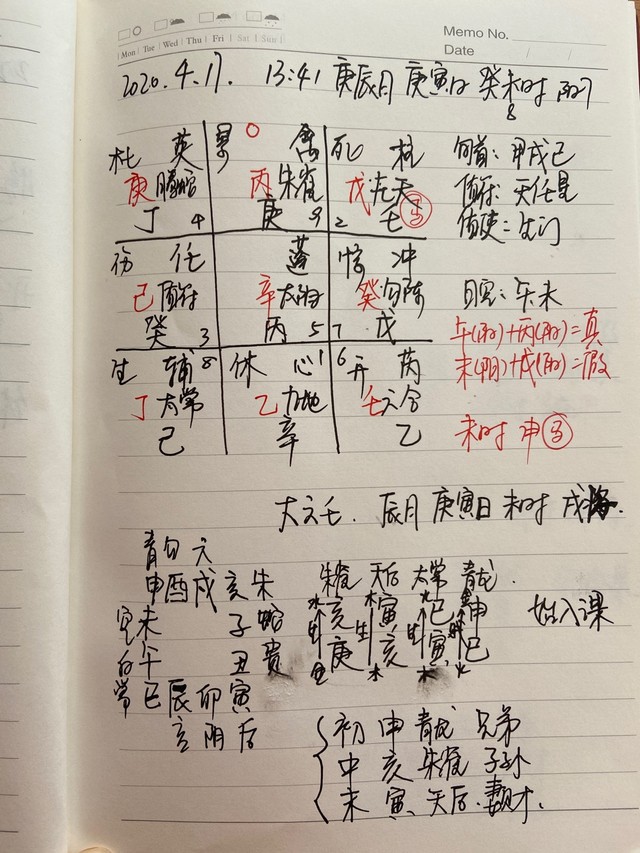 Memo No.
Mon Tue Wed Thu Fri Sat Sun
Date / /
2020.4.17. 13:41 庚辰月 庚寅日 癸未时 阴8
杜 英 景 死 柱 旬首：甲戌己
庚 螣蛇 丙 朱雀 戊 九天 马 值符：天任星
丁 4 庚 9 2 壬 值使：生门
伤 任 蓬 惊 冲
己 值符 辛 太阴 癸 勾陈 日空：午未
癸 3 丙 5 7 戊 午(阳)+丙(阳)=真
生 辅 8 休 心 1 6 开 芮 未(阴)+戊(阳)=假
丁 太常 乙 九地 壬 六合
己 辛 乙 未时 申马
大六壬. 辰月 庚寅日 未时 戌将.
青 勾 六
申 酉 戌 亥 朱 朱雀 天后 太常 青龙.
空 未 子 蛇 水 亥 木 寅 火 巳 金 申 始入课
白 午 丑 贵 生 庚 生 亥 生 寅 巳
常 巳 辰 卯 寅 金 水 木 火
玄 阴 后
初 申 青龙 兄弟
中 亥 朱雀 子孙
末 寅. 天后. 妻财.